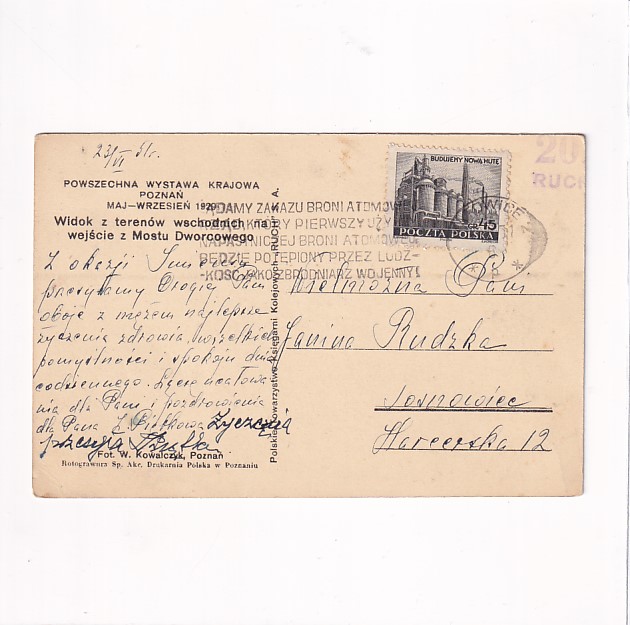 23/VI 51r.
POWSZECHNA WYSTAWA KRAJOWA
POZNAŃ
MAJ—WRZESIEŃ 1929
Widok z terenów wschodnich na
wejście z Mostu Dworcowego
Z okazji Imienin
przesyłamy Drogiej Pani
oboje z mężem najlepsze
życzenia zdrowia wszelkiej
pomyślności i spokoju dnia
codziennego. Łączę ucałowa
nia dla Pani i pozdrowienia
dla Pana Z Życzenia
przesyła
Fot. W. Kowalczyk, Poznań
Rotograwura Sp. Akc. Drukarnia Polska w Poznaniu
Polskie Towarzystwo Księgarni Kolejowych „RUCH" S. A.
BUDUJEMY NOWĄ HUTĘ
45
POCZTA POLSKA
ŻĄDAMY ZAKAZU BRONI ATOMOWEJ
RZĄD KTÓRY PIERWSZY UŻYJE
NAPASTNICZEJ BRONI ATOMOWEJ
BĘDZIE POTĘPIONY PRZEZ LUDZ-
-KOŚĆ JAKO ZBRODNIARZ WOJENNY!
20
RUCH
Wielmożna Pani
Janina Rudzka
Sosnowiec
Harcerska 12